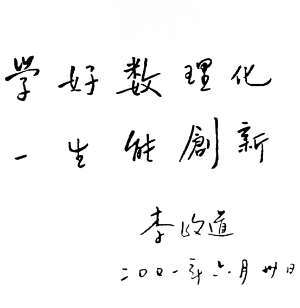 学好数理化
一生能創新
李政道
二〇〇一年六月卅日